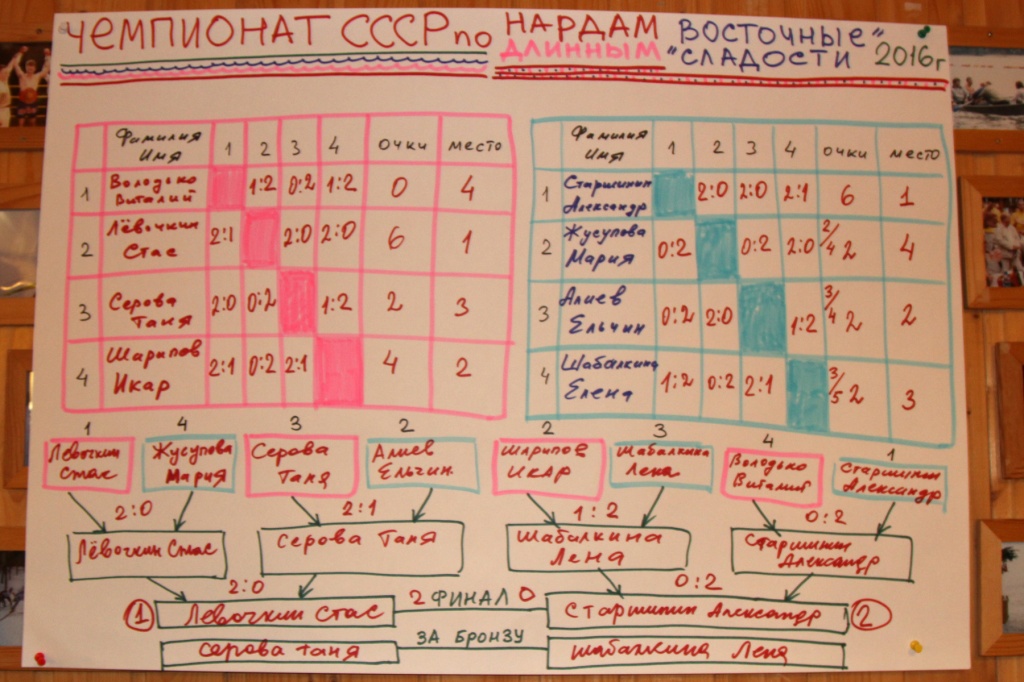 ЧЕМПИОНАТ СССР по НАРДАМ ДЛИННЫМ "ВОСТОЧНЫЕ СЛАДОСТИ" 2016г
Фамилия Имя 1 2 3 4 очки место
1 Володько Виталий 1:2 0:2 1:2 0 4
2 Лёвочкин Стас 2:1 2:0 2:0 6 1
3 Серова Таня 2:0 0:2 1:2 2 3
4 Шарипов Икар 2:1 0:2 2:1 4 2
Фамилия Имя 1 2 3 4 очки место
1 Старшинин Александр 2:0 2:0 2:1 6 1
2 Жусупова Мария 0:2 0:2 2:0 2/4 2 4
3 Алиев Ельчин 0:2 2:0 1:2 3/4 2 2
4 Шабалкина Елена 1:2 0:2 2:1 3/5 2 3
1 4 3 2 2 3 4 1
Лёвочкин Стас
Жусупова Мария
Серова Таня
Алиев Ельчин
Шарипов Икар
Шабалкина Лена
Володько Виталий
Старшинин Александр
2:0 2:1 1:2 0:2
Лёвочкин Стас
Серова Таня
Шабалкина Лена
Старшинин Александр
2:0 0:2
1 Лёвочкин Стас 2 ФИНАЛ 0 Старшинин Александр 2
Серова Таня ЗА БРОНЗУ Шабалкина Лена